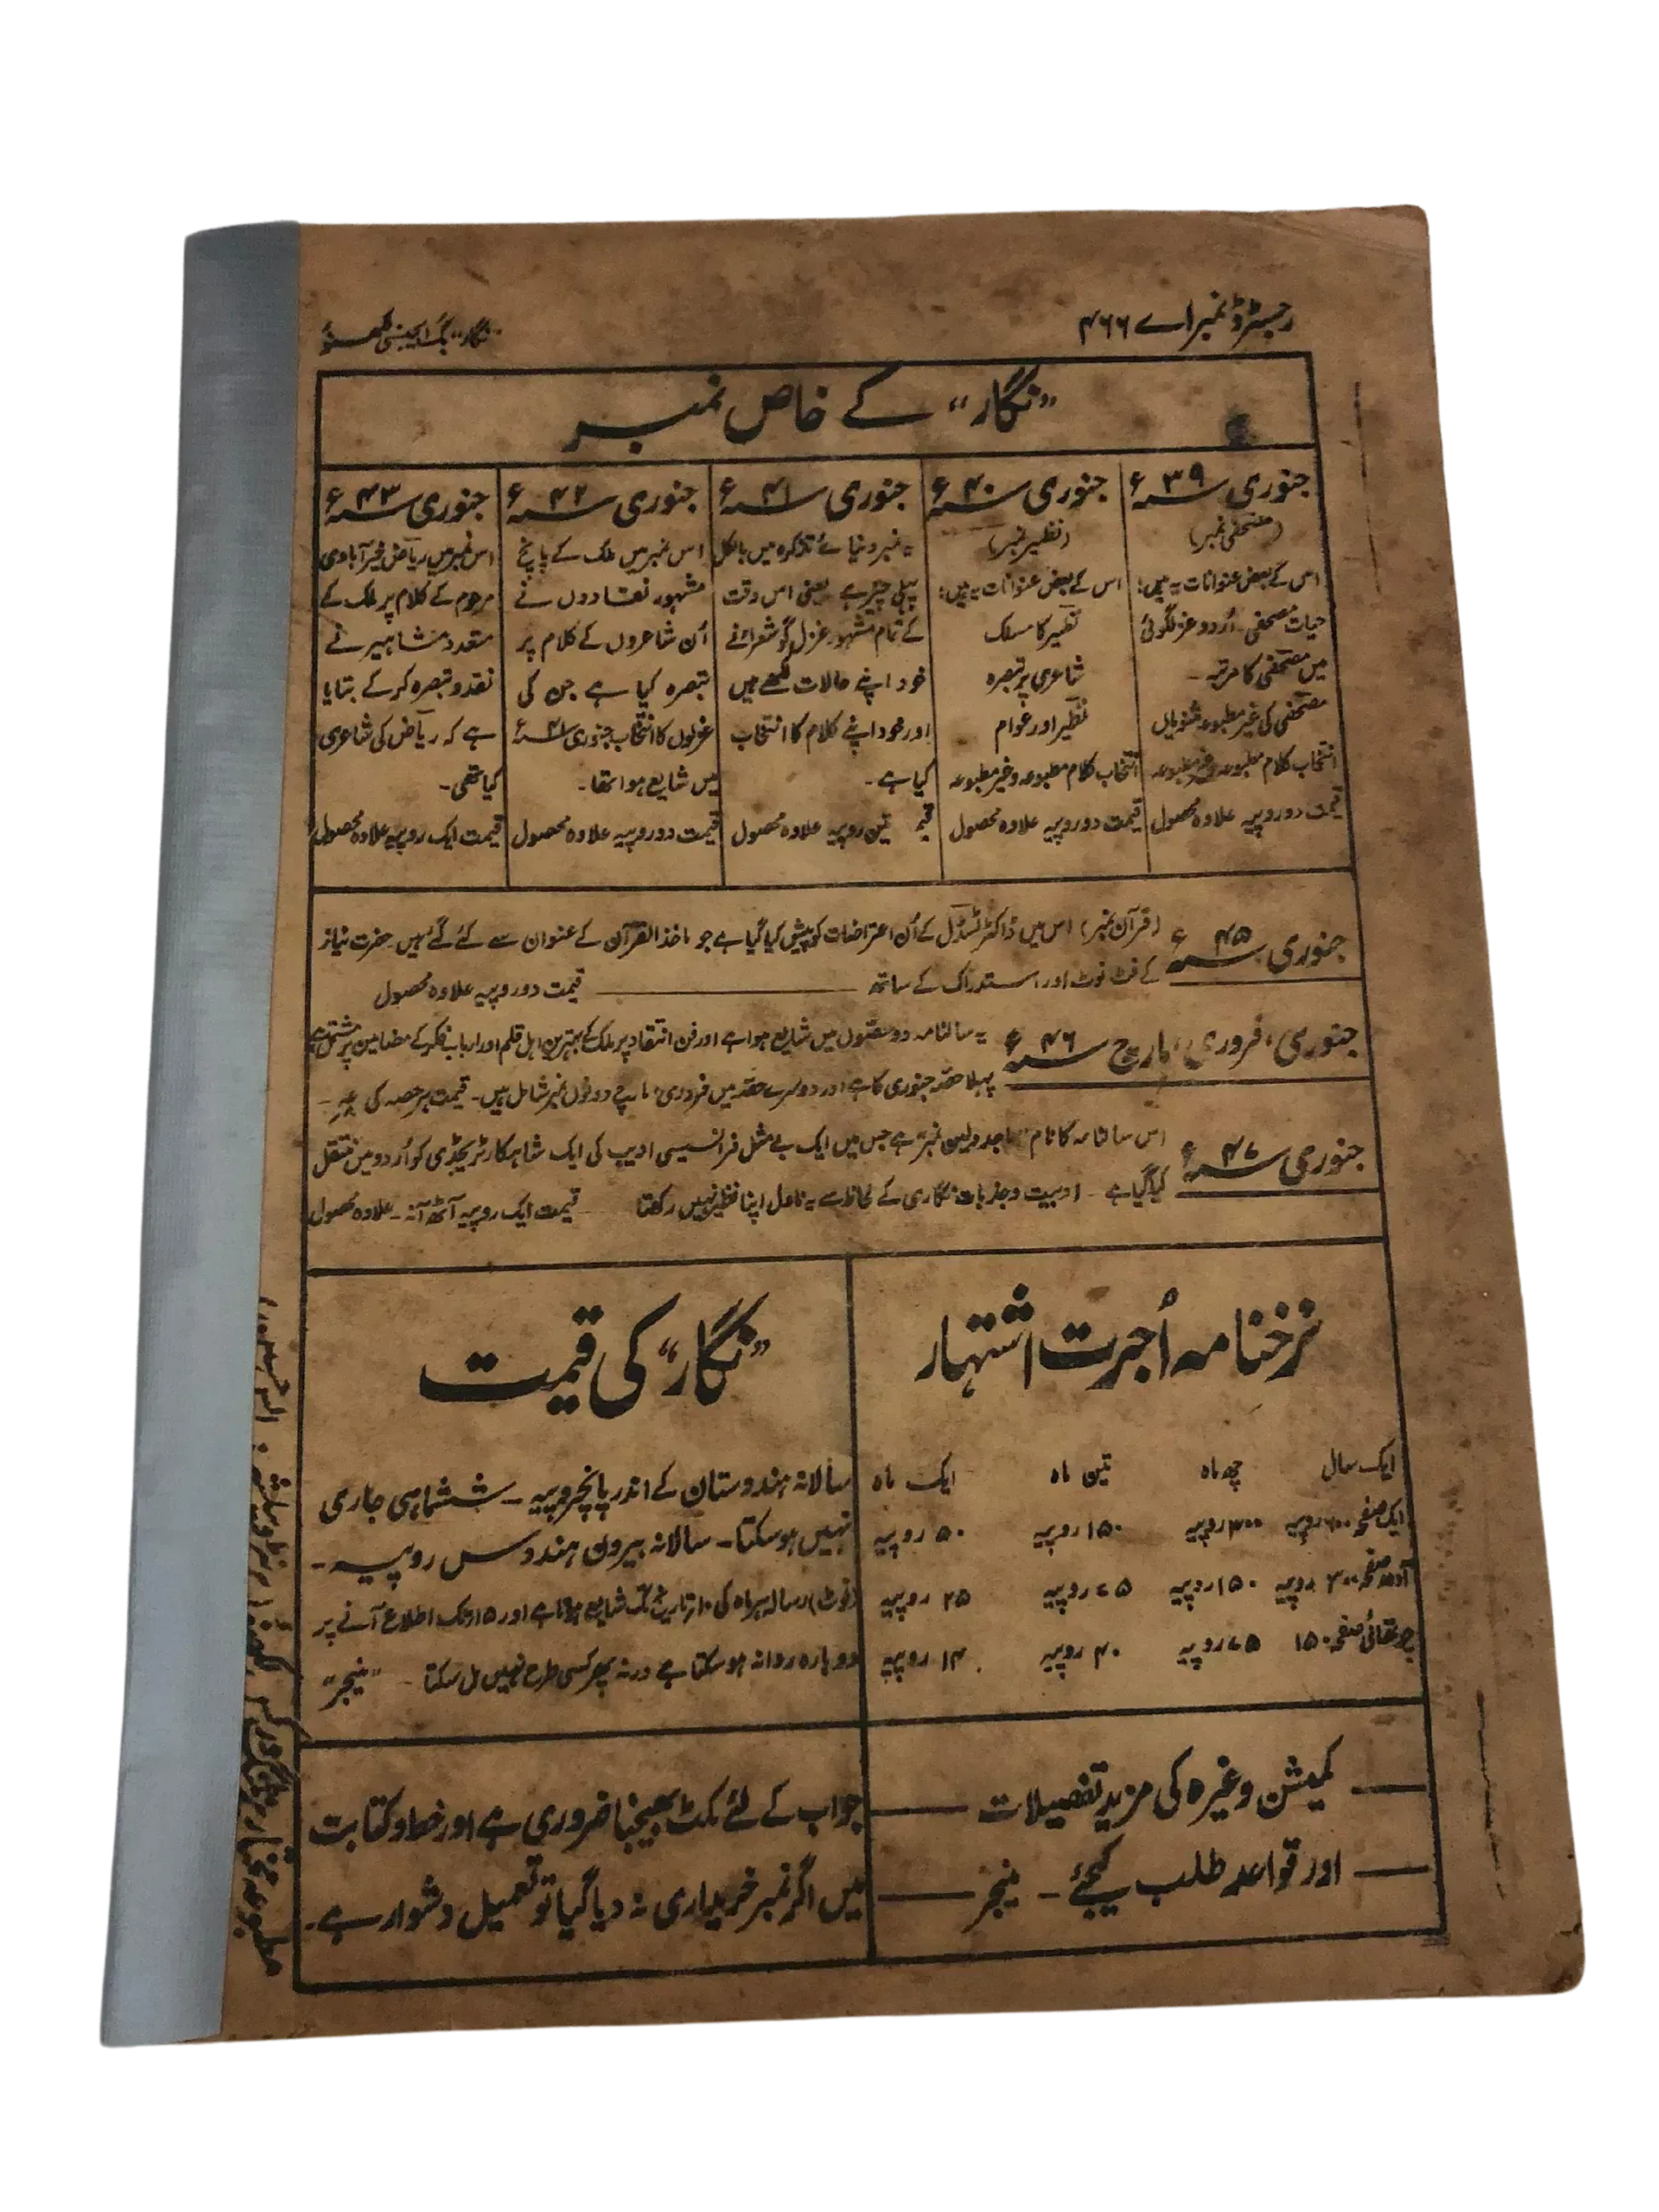 رجسٹرڈ نمبر اے ۴۶۶
"نگار" بک ایجنسی لکھنؤ
"نگار" کے خاص نمبر
جنوری سنہ ۳۹ء
(مصحفی نمبر)
اس کے بعض عنوانات یہ ہیں:
حیات مصحفی۔ اُردو غزلگوئی
میں مصحفی کا مرتبہ۔
مصحفی کی غیر مطبوعہ مثنویاں
انتخاب کلام مطبوعہ وغیر مطبوعہ
قیمت دو روپیہ علاوہ محصول
جنوری سنہ ۴۰ء
(نظیر نمبر)
اس کے بعض عنوانات یہ ہیں:
نظیر کا مسلک
شاعری پر تبصرہ
نظیر اور عوام
انتخاب کلام مطبوعہ وغیر مطبوعہ
قیمت دو روپیہ علاوہ محصول
جنوری سنہ ۴۱ء
یہ نمبر دنیائے تذکرہ میں بالکل
پہلی چیز ہے یعنی اس وقت
کے تمام مشہور غزل گو شعراء نے
خود اپنے حالات لکھے ہیں
اور خود اپنے کلام کا انتخاب
کیا ہے۔
تین روپیہ علاوہ محصول
جنوری سنہ ۴۲ء
اس نمبر میں ملک کے پانچ
مشہور نقادوں نے
اُن شاعروں کے کلام پر
تبصرہ کیا ہے جن کی
غزلوں کا انتخاب جنوری سنہ ۴۱ء
میں شایع ہوا تھا۔
قیمت دو روپیہ علاوہ محصول
جنوری سنہ ۴۳ء
اس نمبر میں ریاض خیرآبادی
مرحوم کے کلام پر ملک کے
متعدد مشاہیر نے
نقد و تبصرہ کر کے بتایا
ہے کہ ریاض کی شاعری
کیا تھی۔
قیمت ایک روپیہ علاوہ محصول
جنوری سنہ ۴۵ء
(قرآن نمبر) اس میں ڈاکٹر ٹسڈل کے اُن اعتراضات کو پیش کیا گیا ہے جو ماخذ القرآن کے عنوان سے کئے گئے ہیں حضرت نیاز
کے فٹ نوٹ اور استدراک کے ساتھ قیمت دو روپیہ علاوہ محصول
جنوری، فروری، مارچ سنہ ۴۶ء
یہ سالنامہ دو حصوں میں شایع ہوا ہے اور فن انتقاد پر ملک کے بہترین اہل قلم اور ارباب فکر کے مضامین پر مشتمل ہے
پہلا حصہ جنوری کا ہے اور دوسرے حصہ میں فروری، مارچ دونوں نمبر شامل ہیں۔ قیمت ہر حصہ کی
جنوری سنہ ۴۷ء
اس سالنامہ کا نام "ماجدولین نمبر" ہے جس میں ایک بے مثل فرانسیسی ادیب کی ایک شاہکار ٹریجڈی کو اُردو میں منتقل
کیا گیا ہے۔ ادبیت و جذبات نگاری کے لحاظ سے یہ ناول اپنا نظیر نہیں رکھتا قیمت ایک روپیہ آٹھ آنہ۔ علاوہ محصول
نرخنامہ اُجرت اشتہار
ایک سال چھ ماہ تین ماہ ایک ماہ
ایک صفحہ ۶۰۰ روپیہ ۳۰۰ روپیہ ۱۵۰ روپیہ ۵۰ روپیہ
آدھ صفحہ ۳۰۰ روپیہ ۱۵۰ روپیہ ۷۵ روپیہ ۲۵ روپیہ
چوتھائی صفحہ ۱۵۰ ۷۵ روپیہ ۴۰ روپیہ ۱۴ روپیہ
"نگار" کی قیمت
سالانہ ہندوستان کے اندر پانچروپیہ۔ ششماہی جاری
نہیں ہو سکتا۔ سالانہ بیرون ہند دس روپیہ۔
(نوٹ) رسالہ ہر ماہ کی ۱۰ تاریخ تک شایع ہوتا ہے اور ۱۵ تک اطلاع آنے پر
دوبارہ روانہ ہو سکتا ہے ورنہ پھر کسی طرح نہیں مل سکتا۔ "منیجر"
کمیشن وغیرہ کی مزید تفصیلات
اور قواعد طلب کیجئے۔ منیجر
جواب کے لئے ٹکٹ بھیجنا ضروری ہے اور خط و کتابت
میں اگر نمبر خریداری نہ دیا گیا تو تعمیل دشوار ہے۔